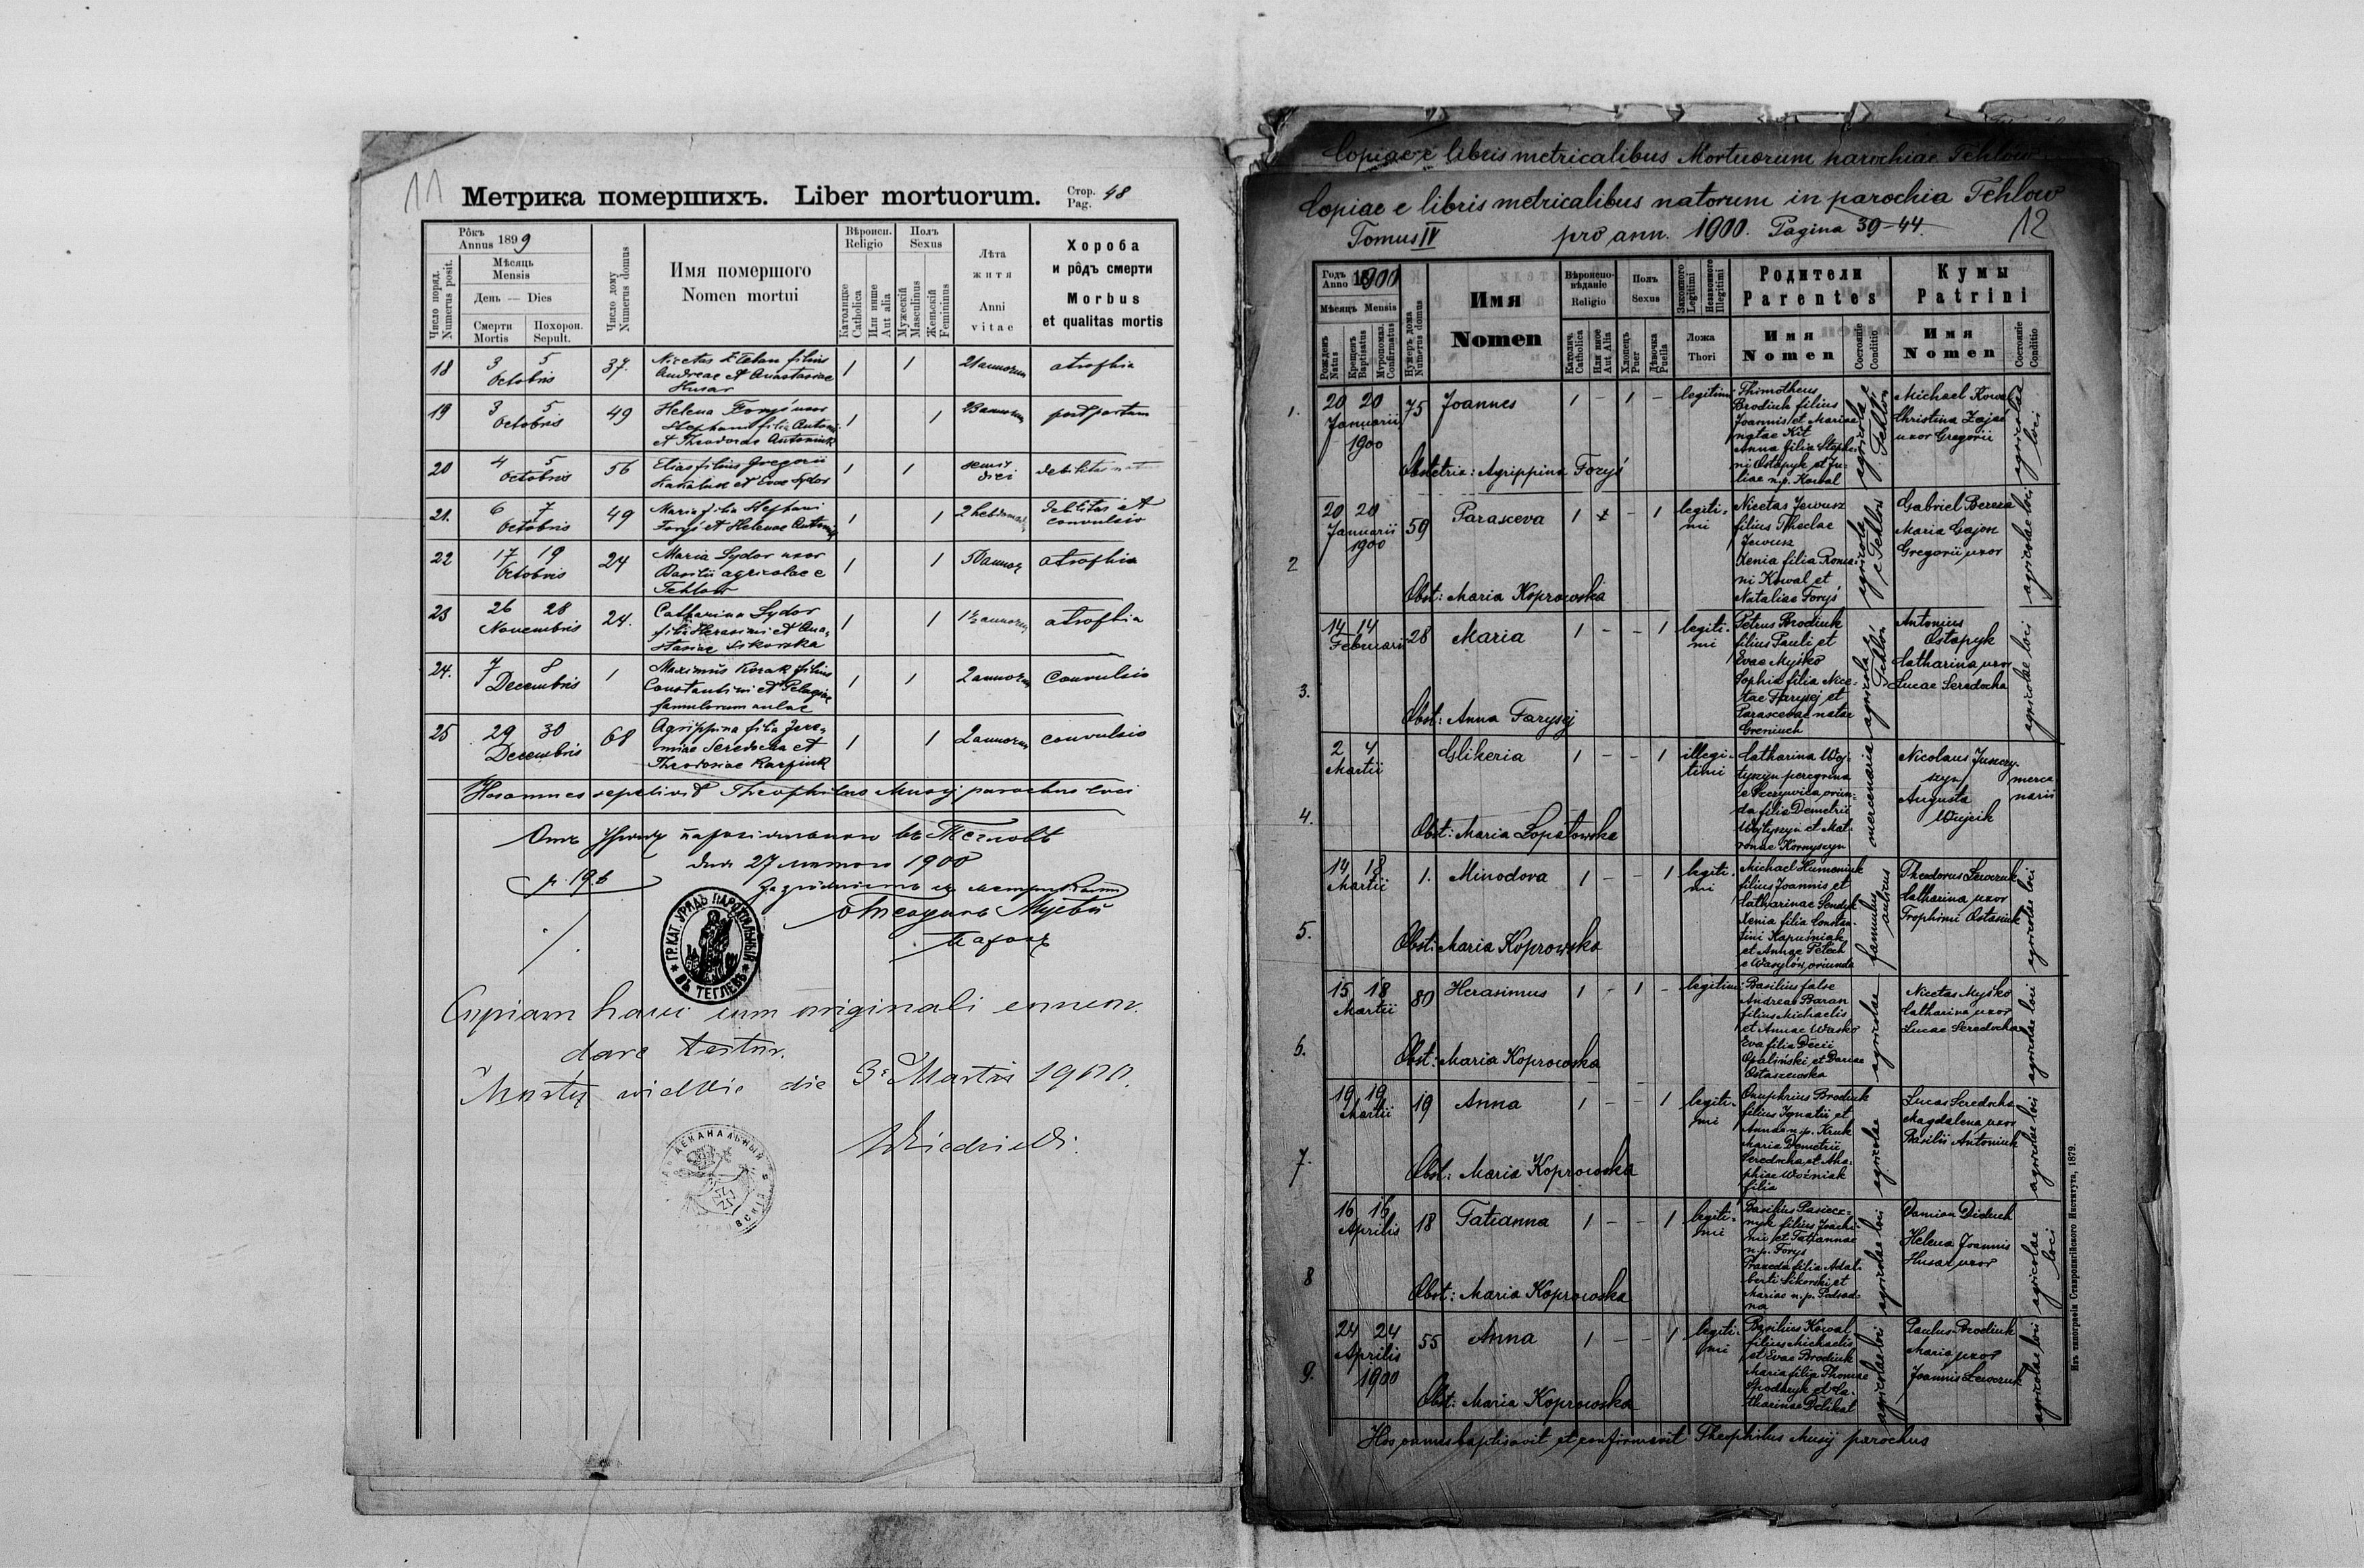 11
Метрика помершихъ. Liber mortuorum.
Стор. Pag. 48
Рôкъ Annus 1899
Мѣсяць Mensis
День — Dies
Смерти Mortis
Похорон. Sepult.
Число поряд. Numerus posit.
Число дому Numerus domus
Имя помершого
Nomen mortui
Вѣроисп. Religio
Католицке Catholica
Или инше Aut alia
Полъ Sexus
Мужескій Masculinus
Женьскій Femininus
Лѣта житя
Anni vitae
Хороба
и рôдъ смерти
Morbus
et qualitas mortis
18 3 5 Octobris 37. Nicetas filius Andreae et Anastasiae Husar 1 1 21 annorum atrophia
19 3 5 Octobris 49 Helena Foryś uxor Stephani filia Antonii et Theodorae Antoniuk 1 1 23 annorum post partum
20 4 5 Octobris 56 Elias filius Gregorii et Evae Sydor 1 1 semis diei debilitas
21. 6 7 Octobris 49 Maria filia Stephani Foryś et Helenae 1 1 2 hebdomad. debilitas et convulsio
22 17 19 Octobris 24 Maria Sydor uxor Basilii agricolae e Tehlow 1 1 50 annor. atrophia
23 26 28 Novembris 24. Catharina Sydor filia Herasimi et Anastasiae Sikorska 1 1 1½ annorum atrophia
24. 7 8 Decembris 1 Maximus Kozak filius Constantini et Pelagiae famulorum aulae 1 1 2 annorum Convulsio
25 29 30 Decembris 68 Agrippina filia Jeremiae Seredocha et Theodosiae Karpiuk 1 1 2 annorum convulsio
Hos omnes sepelivit Theophilus Musij parochus loci
дня 27 лютого 1900
ч. 196
ГР. КАТ. УРЯДЪ ПАРОХІЯЛЬНЫЙ ВЪ ТЕГЛЕВѢ
Copiam hanc cum originali concor-
dare testor.
Mosty wielkie die 3 Martii 1900.
ДЕКАНАЛЬНЫЙ
Copiae e libris metricalibus Mortuorum parochiae Tehlów
Copiae e libris metricalibus natorum in parochia Tehlow
Tomus IV pro ann. 1900. Pagina 39-44.
12
Годъ Anno 1900
Мѣсяць Mensis
Рожденъ Natus
Крещенъ Baptisatus
Муропомаз. Confirmatus
Нумеръ дома Numerus domus
Имя
Nomen
Вѣроисповѣданіе
Religio
Католич. Catholica
Или иное Aut Alia
Полъ
Sexus
Хлопецъ Puer
Дѣвочка Puella
Законного Legitimi
Незаконного Illegitimi
Ложа
Thori
Родители
Parentes
Имя
Nomen
Состояніе Conditio
Кумы
Patrini
Имя
Nomen
Состояніе Conditio
1. 20 20 Januarii 1900 75 Joannes 1 - 1 - legitimi
Thimotheus Brodiuk filius Joannis et Mariae natae Kit
Anna filia Stephani Ostapyk et Juliae n.p. Kowal
agricola e Tehlów
Michael Kowal
Christina Zając uxor Gregorii
agricolae loci
Obstetrix: Agrippina Foryś
2 20 20 Januarii 1900 59 Parasceva 1 - 1 legitimi
Nicetas Jewusz filius Theclae Jewusz
Xenia filia Romani Kowal et Nataliae Foryś
agricola e Tehlów
Gabriel Bereza
Maria Gajon Gregorii uxor
agricolae loci
Obst: Maria Koprowska
3. 14 14 Februarii 28 Maria 1 - - 1 legitimi
Petrus Brodiuk filius Pauli et Evae Myśko
Sophia filia Nicetae Farysej et Parascevae natae Greniuch
agricola Tehlów
Antonius Ostapyk
Catharina uxor Lucae Seredocha
agricolae loci
Obst: Anna Farysej
4. 2 4 Martii Glikeria 1 - - 1 illegitimi
Catharina Wojtyszyn peregrina oriunda filia Demetrii Wojtyszyn et Matronae Kornyszyn
mercenaria
Nicolaus Juszczyszyn
Augusta Wujcik
mercenarii
Obst: Maria Lopatowska
5. 14 18 Martii 1. Minodora 1 - - 1 legitimi
Michael Humeniuk filius Joannis et Catharinae Senduk
Xenia filia Constantini Kapuśniak et Annae Petech e Wasylów oriunda
famulus aulicus
Theodorus Lewczuk
Catharina uxor Trophimi Ostasiuk
agricolae loci
Obst: Maria Koprowska
6. 15 18 Martii 80 Herasimus 1 - 1 - legitimi
Basilius false Andreas Baran filius Michaelis et Annae Wasko
Eva filia Decii Opaliński et Dariae Ostaszewska
agricolae
Nicetas Myśko
Catharina uxor Lucae Seredocha
agricolae loci
Obst: Maria Koprowska
7. 19 19 Martii 19 Anna 1 - - 1 legitimi
Onuphrius Brodiuk filius Ignatii et Annae n.p. Kruk
Maria Demetrii Seredocha et Ahaphiae Woźniak filia
agricolae
Lucas Seredocha
Magdalena uxor Basilii Antoniuk
agricolae loci
Obst: Maria Koprowska
8 16 16 Aprilis 18 Tatianna 1 - - 1 legitimi
Basilius Pasiecznyk filius Joachimi et Tatiannae n.p. Forys
Praxeda filia Adalberti Sikorski et Mariae n.p. Podsadna
agricolae loci
Damian Diduch
Helena Joannis Husar uxor
agricolae loci
Obst: Maria Koprowska
9. 24 24 Aprilis 1900 55 Anna 1 - - 1 legitimi
Basilius Kowal filius Michaelis et Evae Brodiuk
Maria filia Thomae Spodaryk et Catharinae Delikat
agricolae loci
Paulus Brodiuk
Maria uxor Joannis Lewczuk
agricolae loci
Obst: Maria Koprowska
Hos omnes baptisavit et confirmavit Theophilus Musij parochus
Изъ типографіи Ставропигійского Института, 1879.